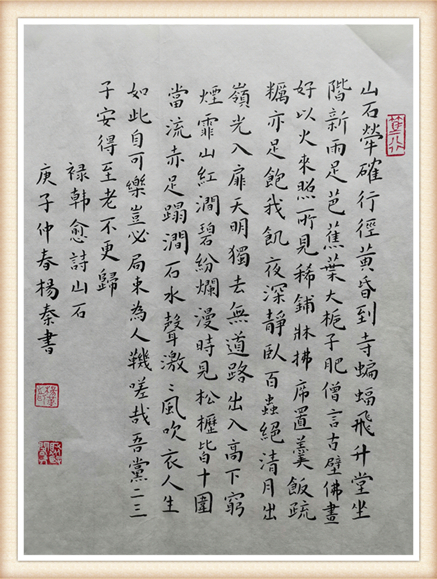 山石犖確行徑黃昏到寺蝙蝠飛升堂坐
階新雨足芭蕉葉大梔子肥僧言古壁佛畫
好以火來照所見稀鋪牀拂席置羹飯疏
糲亦足飽我飢夜深靜臥百蟲絕清月出
嶺光入扉天明獨去無道路出入高下窮
煙霏山紅澗碧紛爛漫時見松櫪皆十圍
當流赤足蹋澗石水聲激〻風吹衣人生
如此自可樂豈必局束為人鞿嗟哉吾黨二三
子安得至老不更歸
禄韓愈詩山石
庚子仲春楊秦書